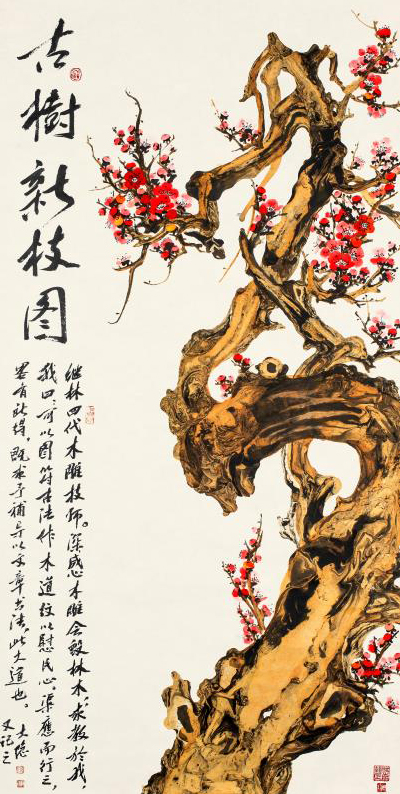 古樹新枝图
继林四代木雕技师。深感木雕会毁林木,求教於我,
我曰:可以图符古法作木道纹以慰民心,渠應而行之,
畧有所得,既求予補景以文章书法,此大道也。
又記之